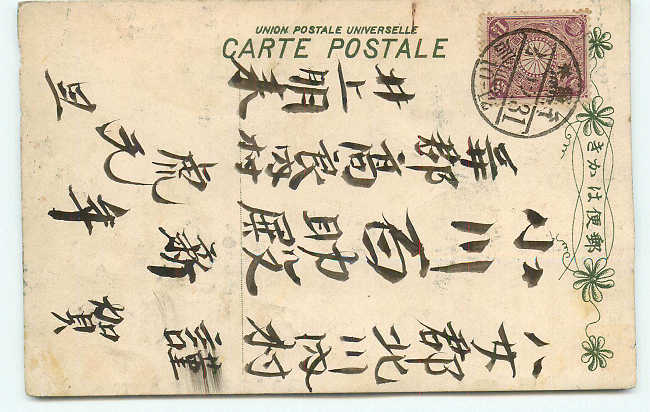 UNION POSTALE UNIVERSELLE
CARTE POSTALE
郵便はかき
八女郡北川内村
小川百助殿
郡高良内村
井上明
謹賀
新年
元旦